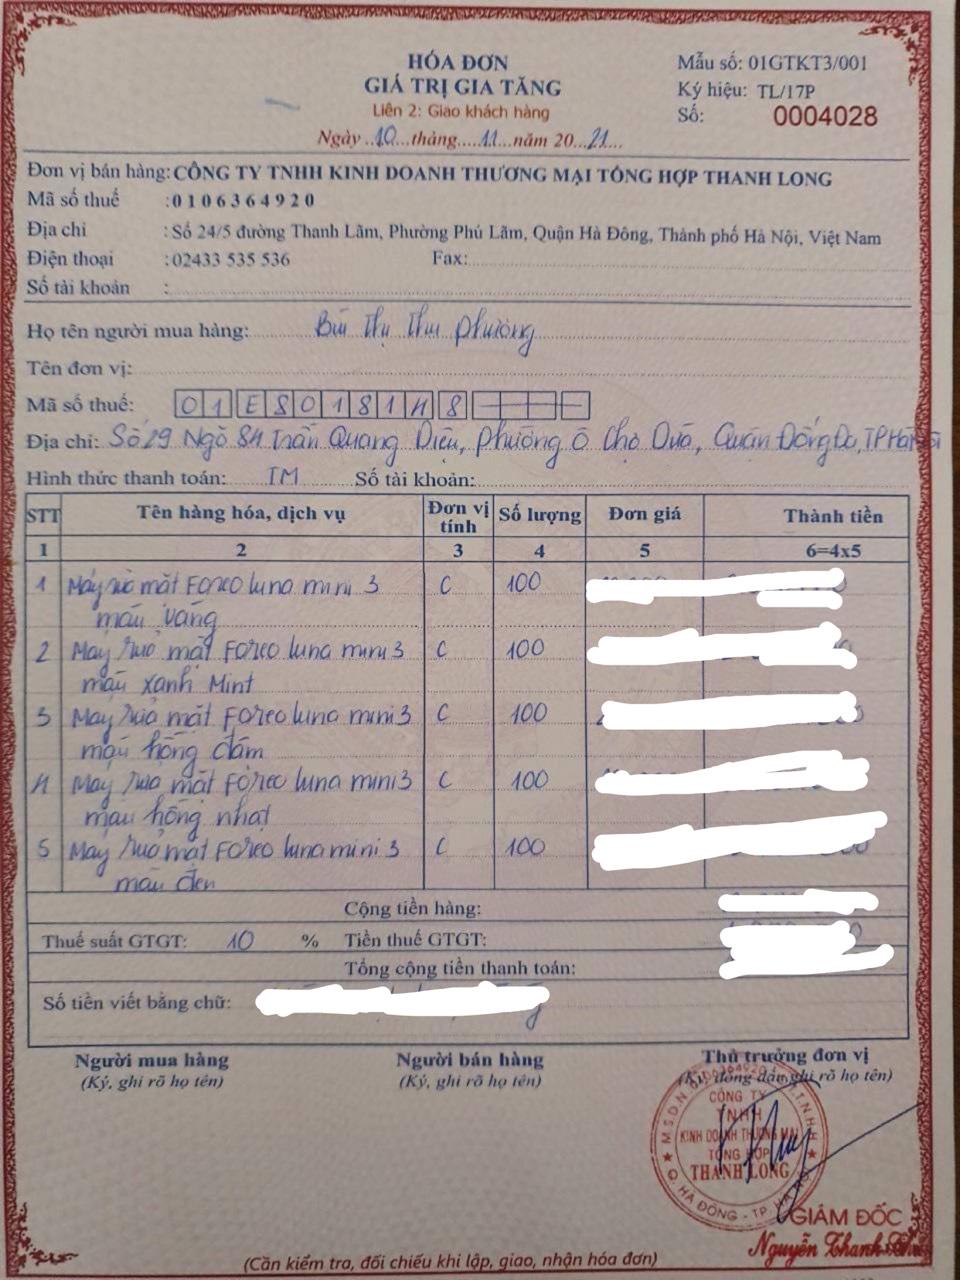 HÓA ĐƠN
GIÁ TRỊ GIA TĂNG
Liên 2: Giao khách hàng
Ngày 10 tháng 11 năm 2021
Mẫu số: 01GTKT3/001
Ký hiệu: TL/17P
Số: 0004028
Đơn vị bán hàng: CÔNG TY TNHH KINH DOANH THƯƠNG MẠI TỔNG HỢP THANH LONG
Mã số thuế : 0106364920
Địa chỉ : Số 24/5 đường Thanh Lãm, Phường Phú Lãm, Quận Hà Đông, Thành phố Hà Nội, Việt Nam
Điện thoại : 02433 535 536 Fax:
Số tài khoản :
Họ tên người mua hàng: Bùi Thị Thu Phường
Tên đơn vị:
Mã số thuế: 01E8018148
Địa chỉ: Số 29 Ngõ 84 Trần Quang Diệu, Phường Ô Chợ Dừa, Quận Đống Đa, TP Hà Nội
Hình thức thanh toán: TM Số tài khoản:
STT Tên hàng hóa, dịch vụ Đơn vị tính Số lượng Đơn giá Thành tiền
1 2 3 4 5 6=4x5
1 Máy rửa mặt Foreo luna mini 3 C 100
màu vàng
2 Máy rửa mặt Foreo luna mini 3 C 100
màu xanh Mint
3 Máy rửa mặt Foreo luna mini 3 C 100
màu hồng đậm
4 Máy rửa mặt Foreo luna mini 3 C 100
màu hồng nhạt
5 Máy rửa mặt Foreo luna mini 3 C 100
màu đen
Cộng tiền hàng:
Thuế suất GTGT: 10 % Tiền thuế GTGT:
Tổng cộng tiền thanh toán:
Số tiền viết bằng chữ:
Người mua hàng Người bán hàng Thủ trưởng đơn vị
(Ký, ghi rõ họ tên) (Ký, ghi rõ họ tên) (Ký, đóng dấu, ghi rõ họ tên)
M.S.D.N: 0106364920
CÔNG TY
TNHH
KINH DOANH THƯƠNG MẠI
TỔNG HỢP
THANH LONG
Q. HÀ ĐÔNG - TP. HÀ NỘI
GIÁM ĐỐC
Nguyễn Thanh
(Cần kiểm tra, đối chiếu khi lập, giao, nhận hóa đơn)